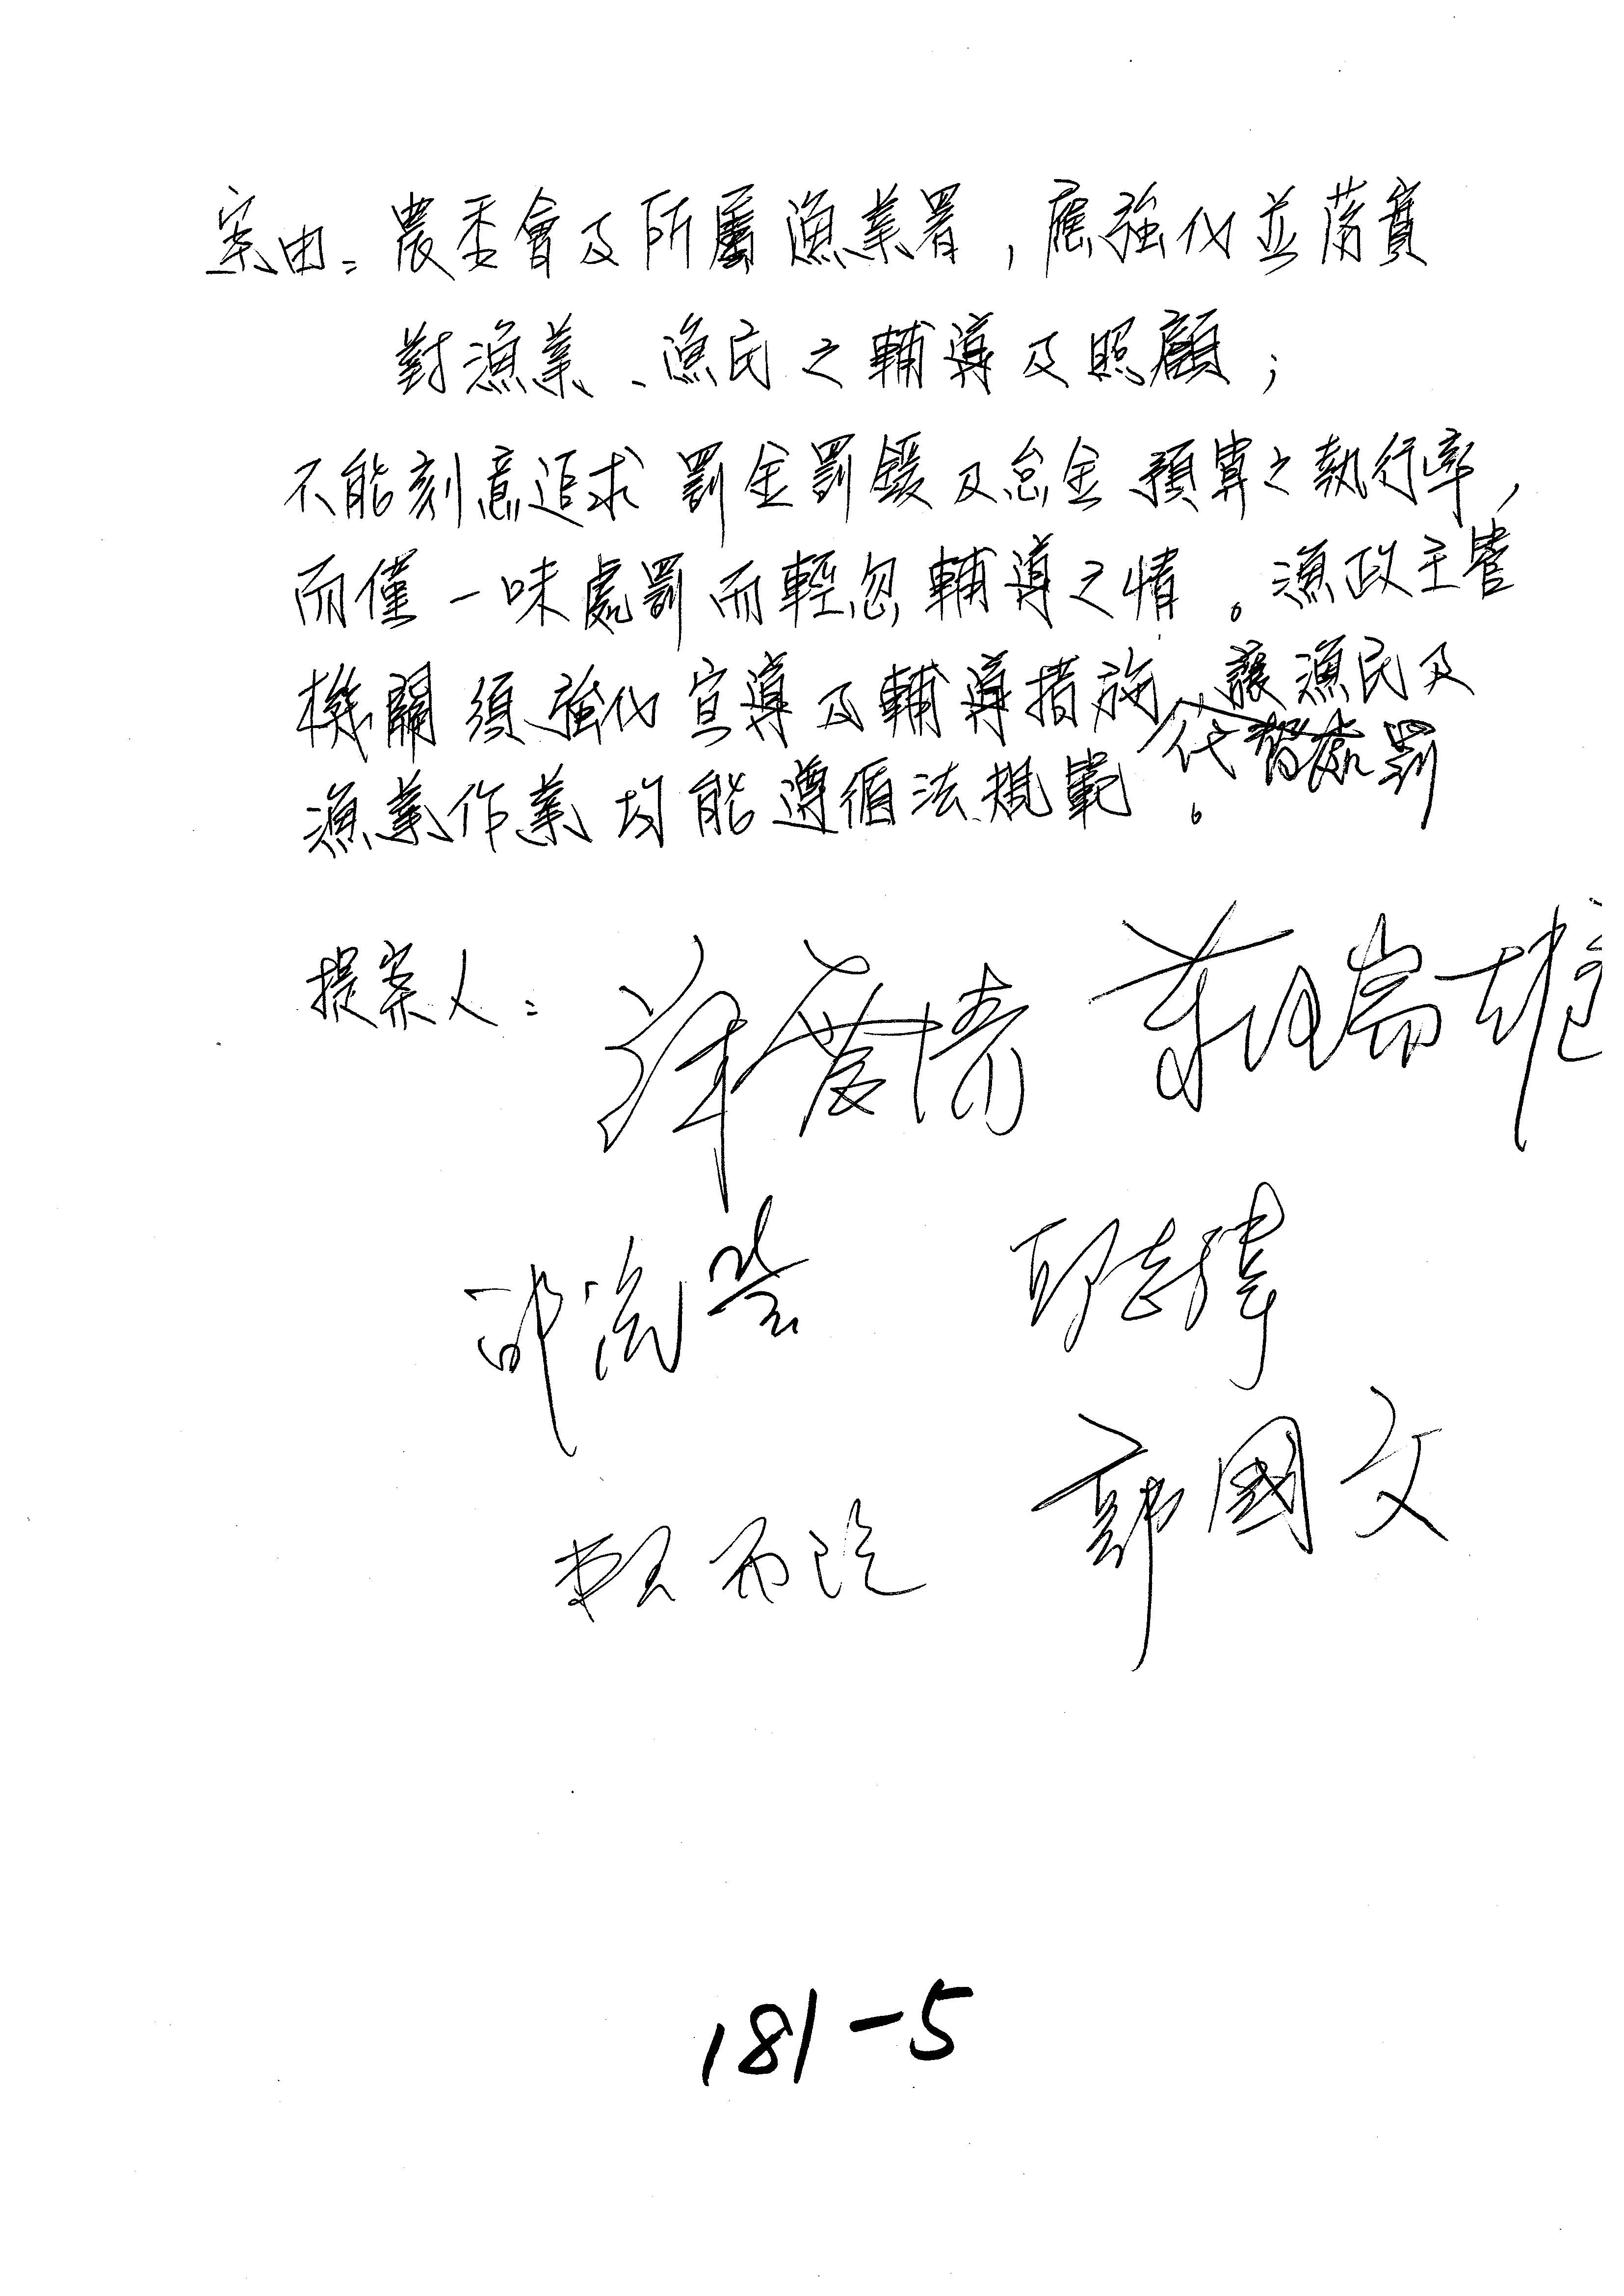 案由：農委會及所屬漁業署，應強化並落實
對漁業、漁民之輔導及照顧；
不能刻意追求罰金罰鍰及怠金預算之執行率，
而僅一味處罰而輕忽輔導之情。漁政主管
機關須強化宣導及輔導措施代替處罰讓漁民及
漁業作業均能遵循法規範。
提案人：
蔡培慧 蘇治芬
邱志偉
郭國文
181-5